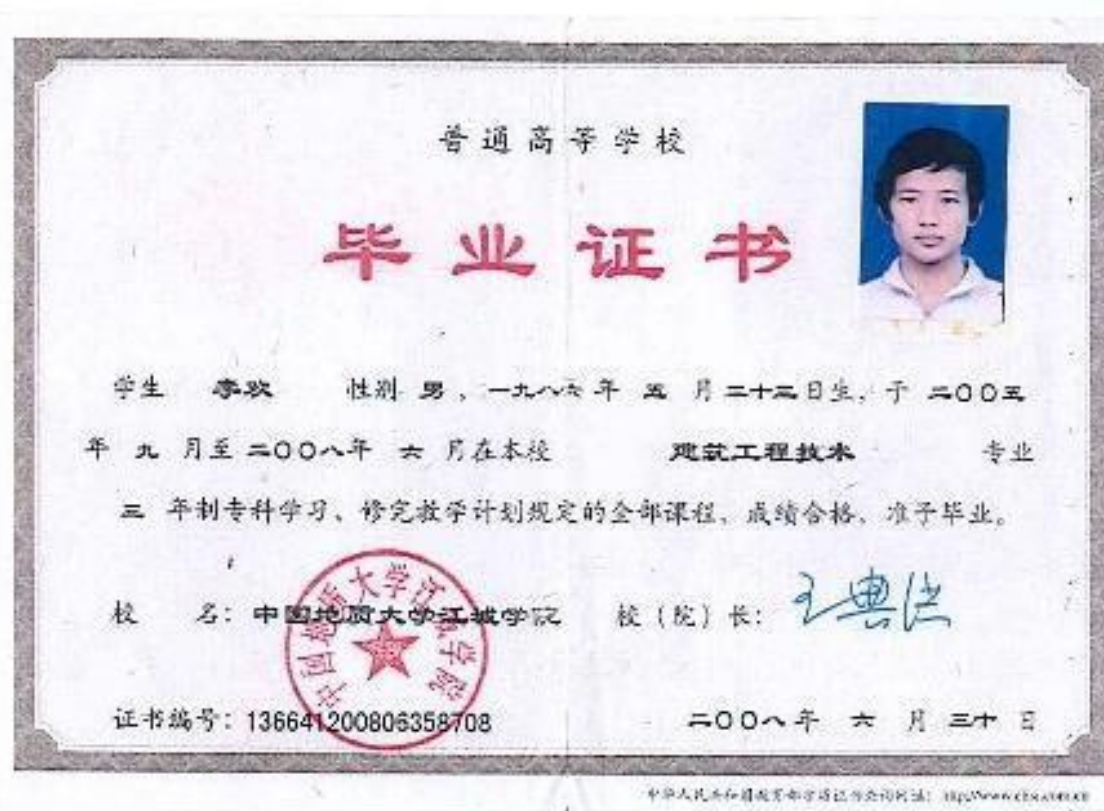 普通高等学校
毕业证书
学生 李欢 性别 男，一九八六年 五 月二十三日生，于 二〇〇五
年 九 月至二〇〇八年 六 月在本校 建筑工程技术 专业
三 年制专科学习、修完教学计划规定的全部课程、成绩合格，准予毕业。
校 名：中国地质大学江城学院 校（院）长：王典洪
中国地质大学江城学院
证书编号：136641200806358708 二〇〇八年 六 月 三十 日
中华人民共和国教育部学历证书查询网址：http://www.chsi.com.cn